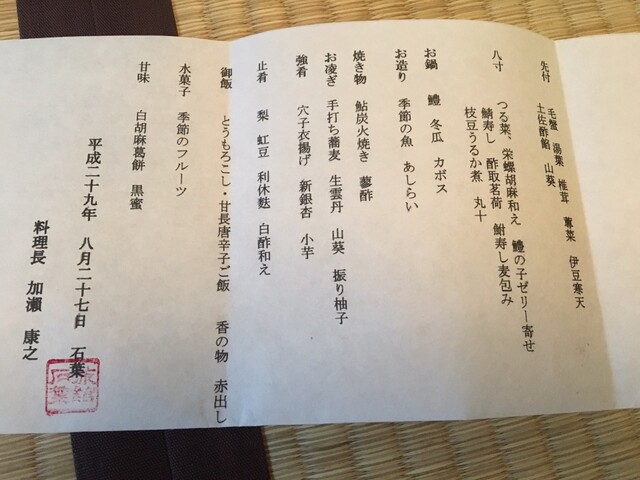 先付　毛蟹　湯葉　椎茸　蓴菜　伊豆寒天
土佐酢餡　山葵
八寸　つる菜、栄螺胡麻和え　鱧の子ゼリー寄せ
鯖寿し　酢取茗荷　鮒寿し麦包み
枝豆うるか煮　丸十
お鍋　鱧　冬瓜　カボス
お造り　季節の魚　あしらい
焼き物　鮎炭火焼き　蓼酢
お凌ぎ　手打ち蕎麦　生雲丹　山葵　振り柚子
強肴　穴子衣揚げ　新銀杏　小芋
止肴　梨　虹豆　利休麩　白酢和え
御飯　とうもろこし・甘長唐辛子ご飯　香の物　赤出し
水菓子　季節のフルーツ
甘味　白胡麻葛餅　黒蜜
平成二十九年　八月二十七日　石葉
料理長　加瀬　康之
旅館石葉